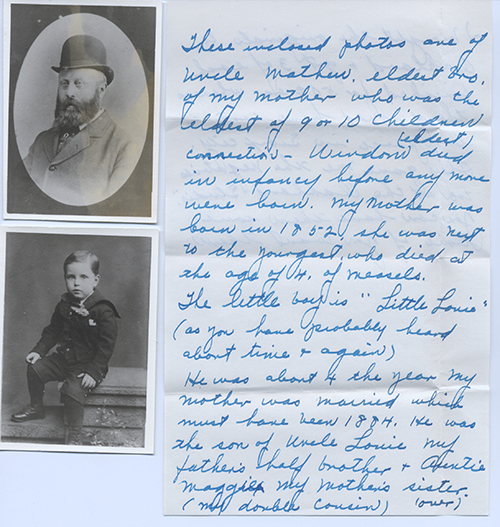 These inclosed photos are of
Uncle Mathew, eldest bro.
of my mother who was the
eldest of 9 or 10 Children
(eldest)
Connection - Windom died
in infancy before any more
were born. My Mother was
born in 1852, she was next
to the youngest, who died at
the age of 4, of measels.
The little boy is "Little Louie"
(as you have probably heard
about time + again)
He was about 4 the year my
mother was married which
must have been 1884. He was
the son of Uncle Louie my
father's half brother + Auntie
Maggie my Mother's sister.
(my double cousin) (over)